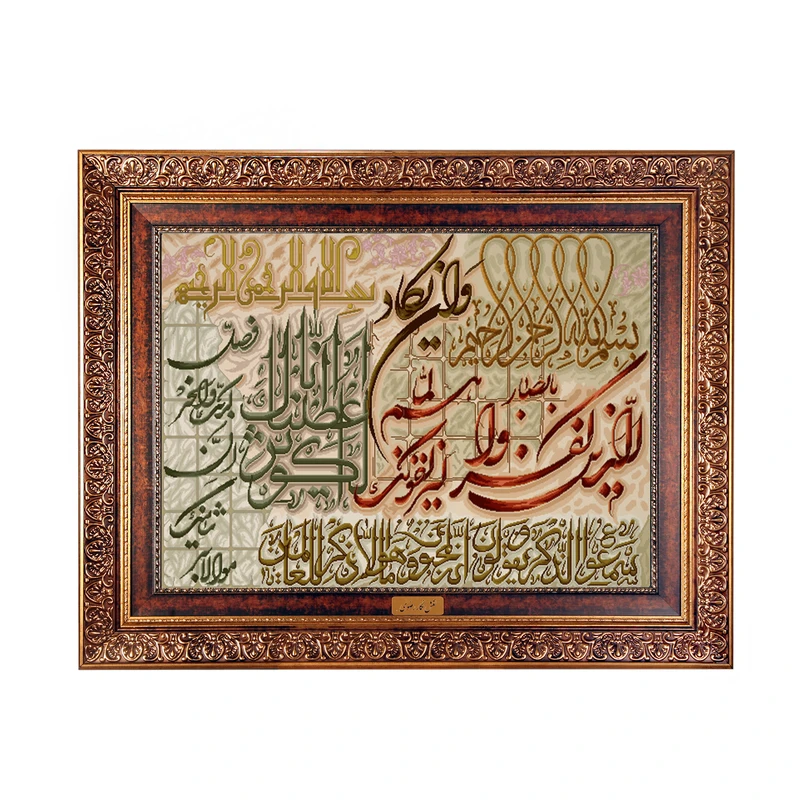 بسم الله الرحمن الرحيم
وإن يكاد
الذين كفروا ليزلقونك
بأبصارهم لما
سمعوا الذكر ويقولون إنه لمجنون وما هو إلا ذكر للعالمين
بسم الله الرحمن الرحيم
إنا أعطيناك
الكوثر
فصل
لربك وانحر
إن
شانئك
هو الأبتر